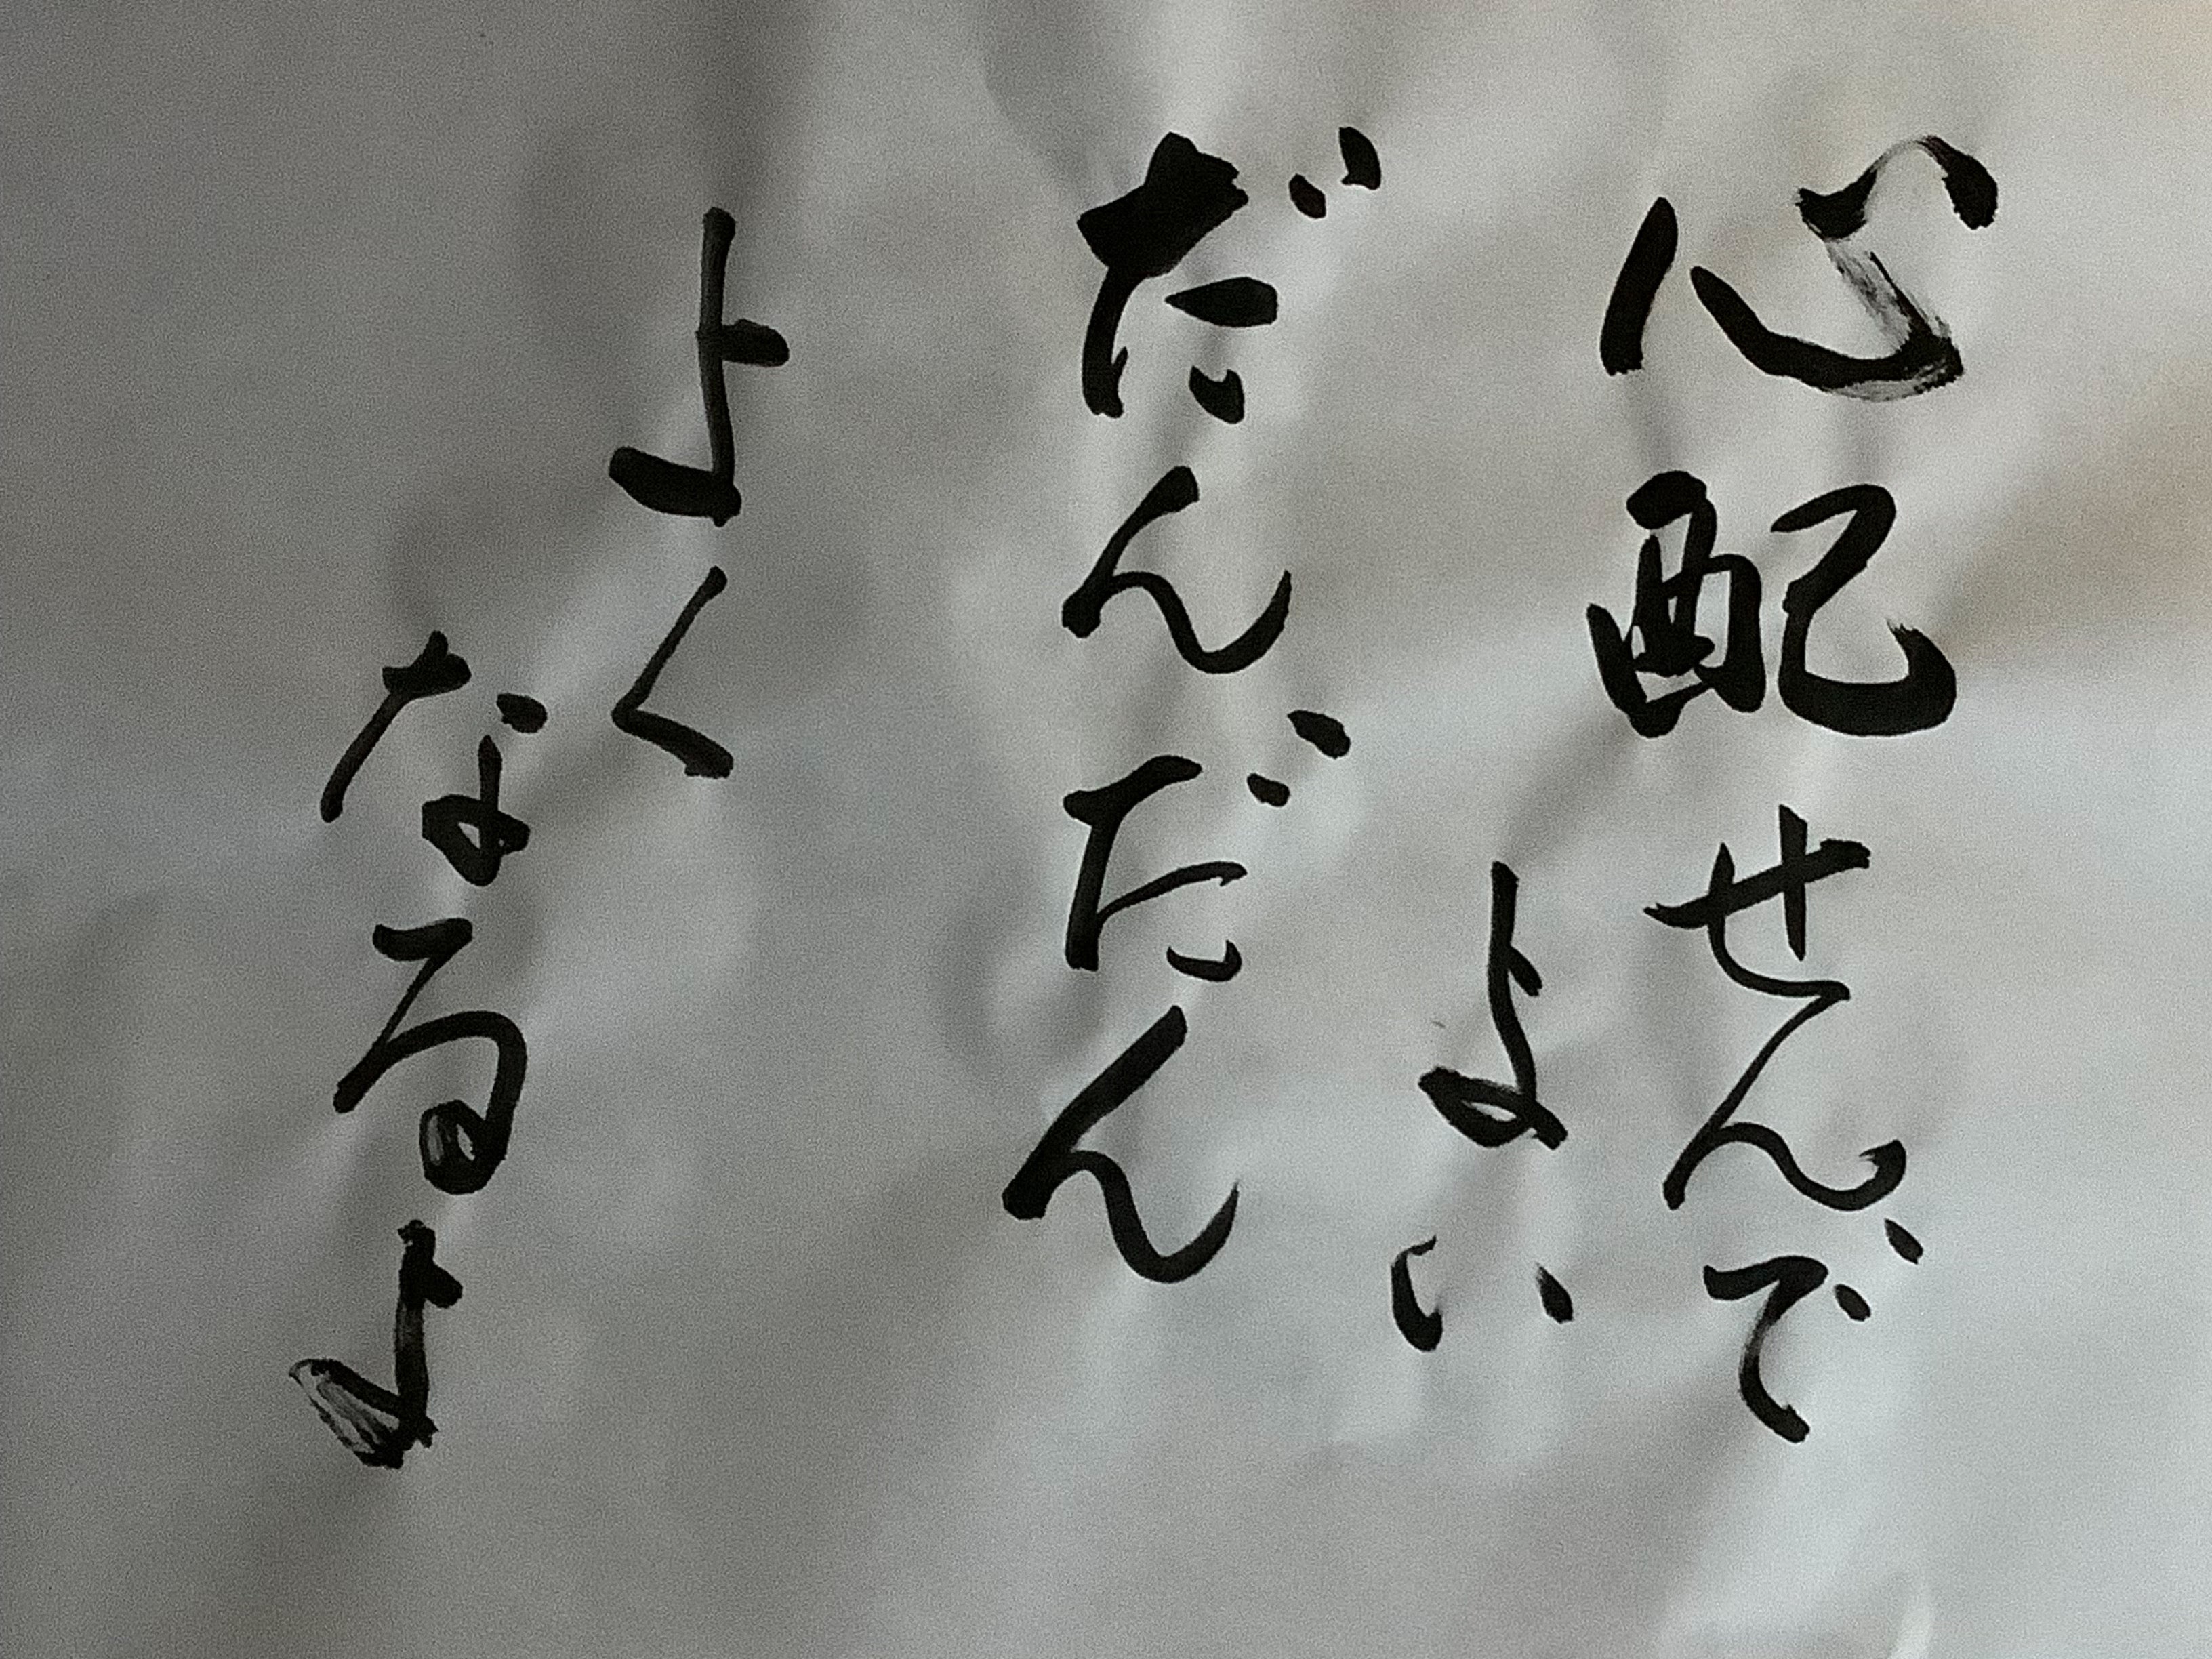 心配せんで
よい
だんだん
よく
なるよ